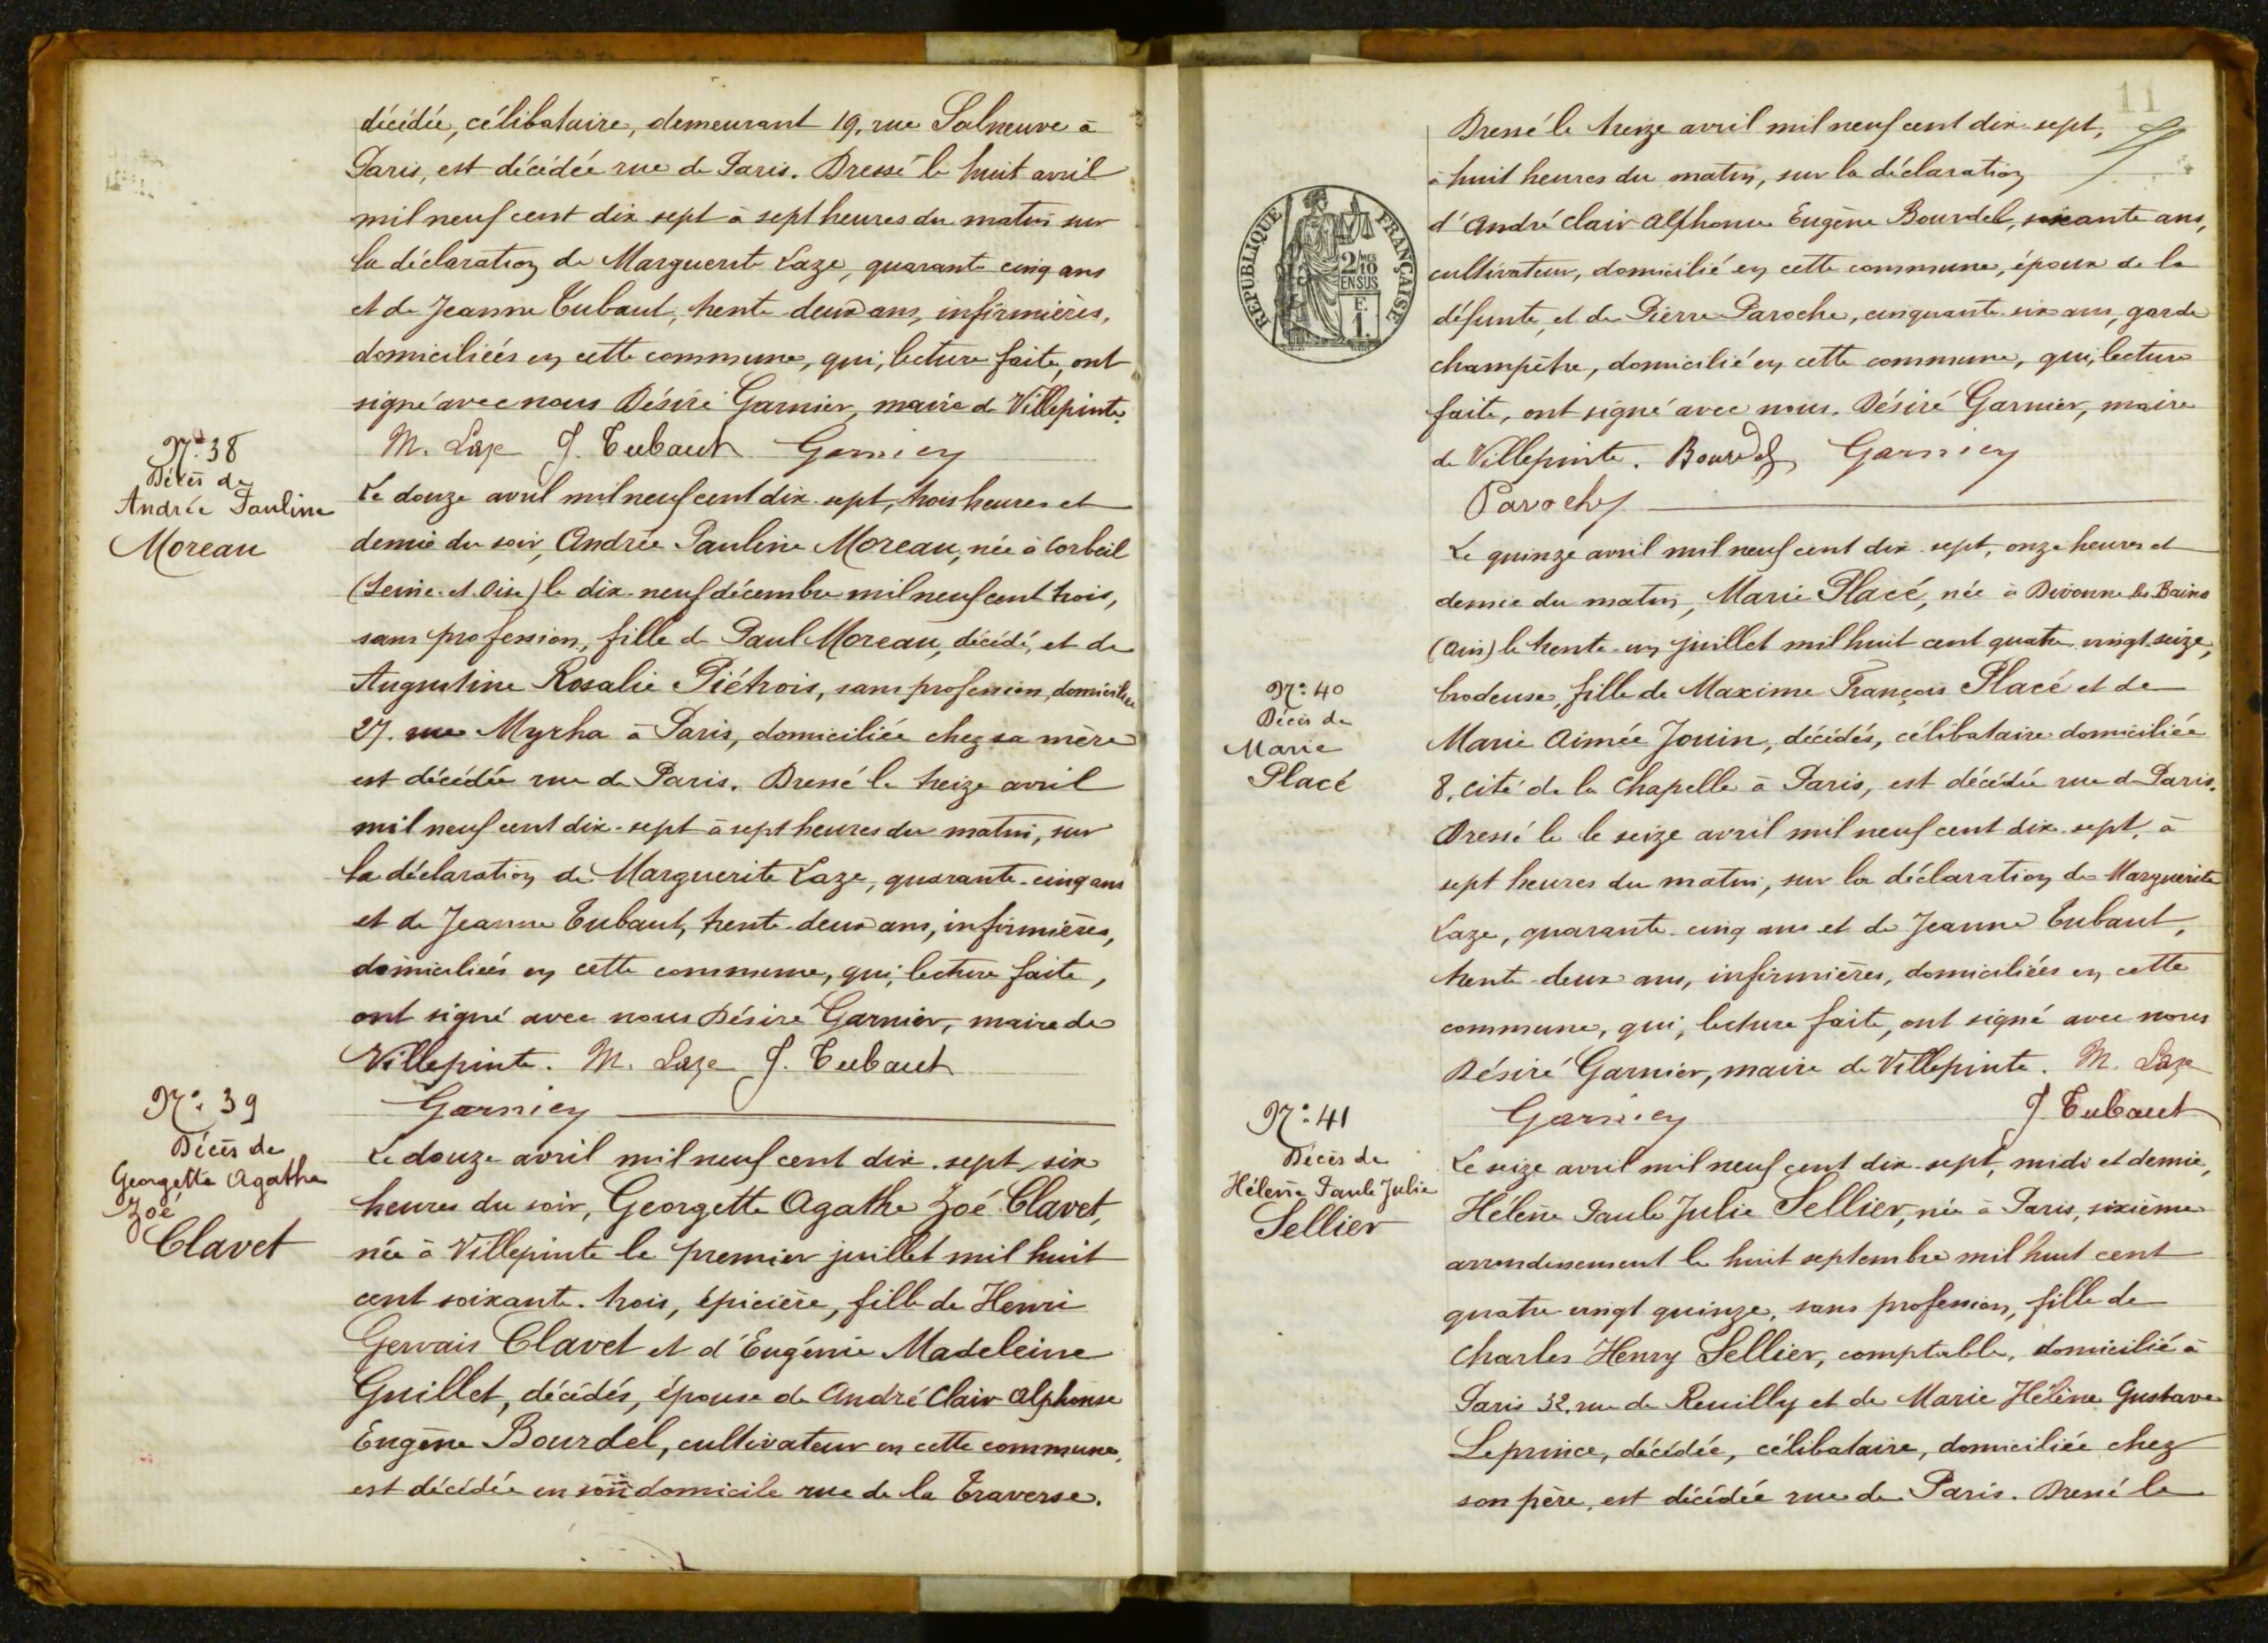 décédée, célibataire, demeurant 19, rue Salneuve à
Paris, est décédée rue de Paris. Dressé le huit avril
mil neuf cent dix sept à sept heures du matin sur
la déclaration de Marguerite Laze, quarante cinq ans
et de Jeanne Tubaut, trente deux ans, infirmières,
domiciliées en cette commune, qui, lecture faite, ont
signé avec nous Désiré Garnier, maire de Villepinte.
M. Laze J. Tubaut Garnier
N°: 38
Décès de
Andrée Pauline
Moreau
Le douze avril mil neuf cent dix sept, trois heures et
demie du soir, Andrée Pauline Moreau, née à Corbeil
(Seine-et-Oise) le dix-neuf décembre mil neuf cent trois,
sans profession, fille de Paul Moreau, décédé, et de
Augustine Rosalie Piétrois, sans profession, domiciliée
27. rue Myrha à Paris, domiciliée chez sa mère
est décédée rue de Paris. Dressé le treize avril
mil neuf cent dix-sept à sept heures du matin, sur
la déclaration de Marguerite Laze, quarante-cinq ans
et de Jeanne Tubaut, trente-deux ans, infirmières,
domiciliées en cette commune, qui, lecture faite,
ont signé avec nous Désiré Garnier, maire de
Villepinte. M. Laze J. Tubaut
Garnier
N°: 39
Décès de
Georgette Agathe
Zoé
Clavet
Le douze avril mil neuf cent dix-sept, six
heures du soir, Georgette Agathe Zoé Clavet,
née à Villepinte le premier juillet mil huit
cent soixante-trois, épicière, fille de Henri
Gervais Clavet et d'Eugénie Madeleine
Guillet, décédés, épouse de André Clair Alphonse
Eugène Bourdel, cultivateur en cette commune,
est décédée en son domicile rue de la Traverse.
11
Dressé le treize avril mil neuf cent dix-sept,
à huit heures du matin, sur la déclaration
d'André Clair Alphonse Eugène Bourdel, soixante ans,
cultivateur, domicilié en cette commune, époux de la
défunte, et de Pierre Paroche, cinquante-six ans, garde
champêtre, domicilié en cette commune, qui, lecture
faite, ont signé avec nous. Désiré Garnier, maire
de Villepinte. Bourdel Garnier
Paroche
RÉPUBLIQUE FRANÇAISE
2/10MES
EN SUS
F.
1.
N°: 40
Décès de
Marie
Placé
Le quinze avril mil neuf cent dix-sept, onze heures et
demie du matin, Marie Placé, née à Divonne les Bains
(Ain) le trente-un juillet mil huit cent quatre vingt-seize,
brodeuse, fille de Maxime François Placé et de
Marie Aimée Jouin, décédés, célibataire domiciliée
8, cité de la Chapelle à Paris, est décédée rue de Paris.
Dressé le le seize avril mil neuf cent dix-sept, à
sept heures du matin, sur la déclaration de Marguerite
Laze, quarante-cinq ans et de Jeanne Tubaut,
trente-deux ans, infirmières, domiciliées en cette
commune, qui, lecture faite, ont signé avec nous
Désiré Garnier, maire de Villepinte. M. Laze
Garnier J. Tubaut
N°: 41
Décès de
Hélène Paule Julie
Sellier
Le seize avril mil neuf cent dix-sept, midi et demie,
Hélène Paule Julie Sellier, née à Paris, sixième
arrondissement le huit septembre mil huit cent
quatre vingt quinze, sans profession, fille de
Charles Henry Sellier, comptable, domicilié à
Paris 32, rue de Reuilly et de Marie Hélène Gustave
Leprince, décédée, célibataire, domiciliée chez
son père, est décédée rue de Paris. Dressé le